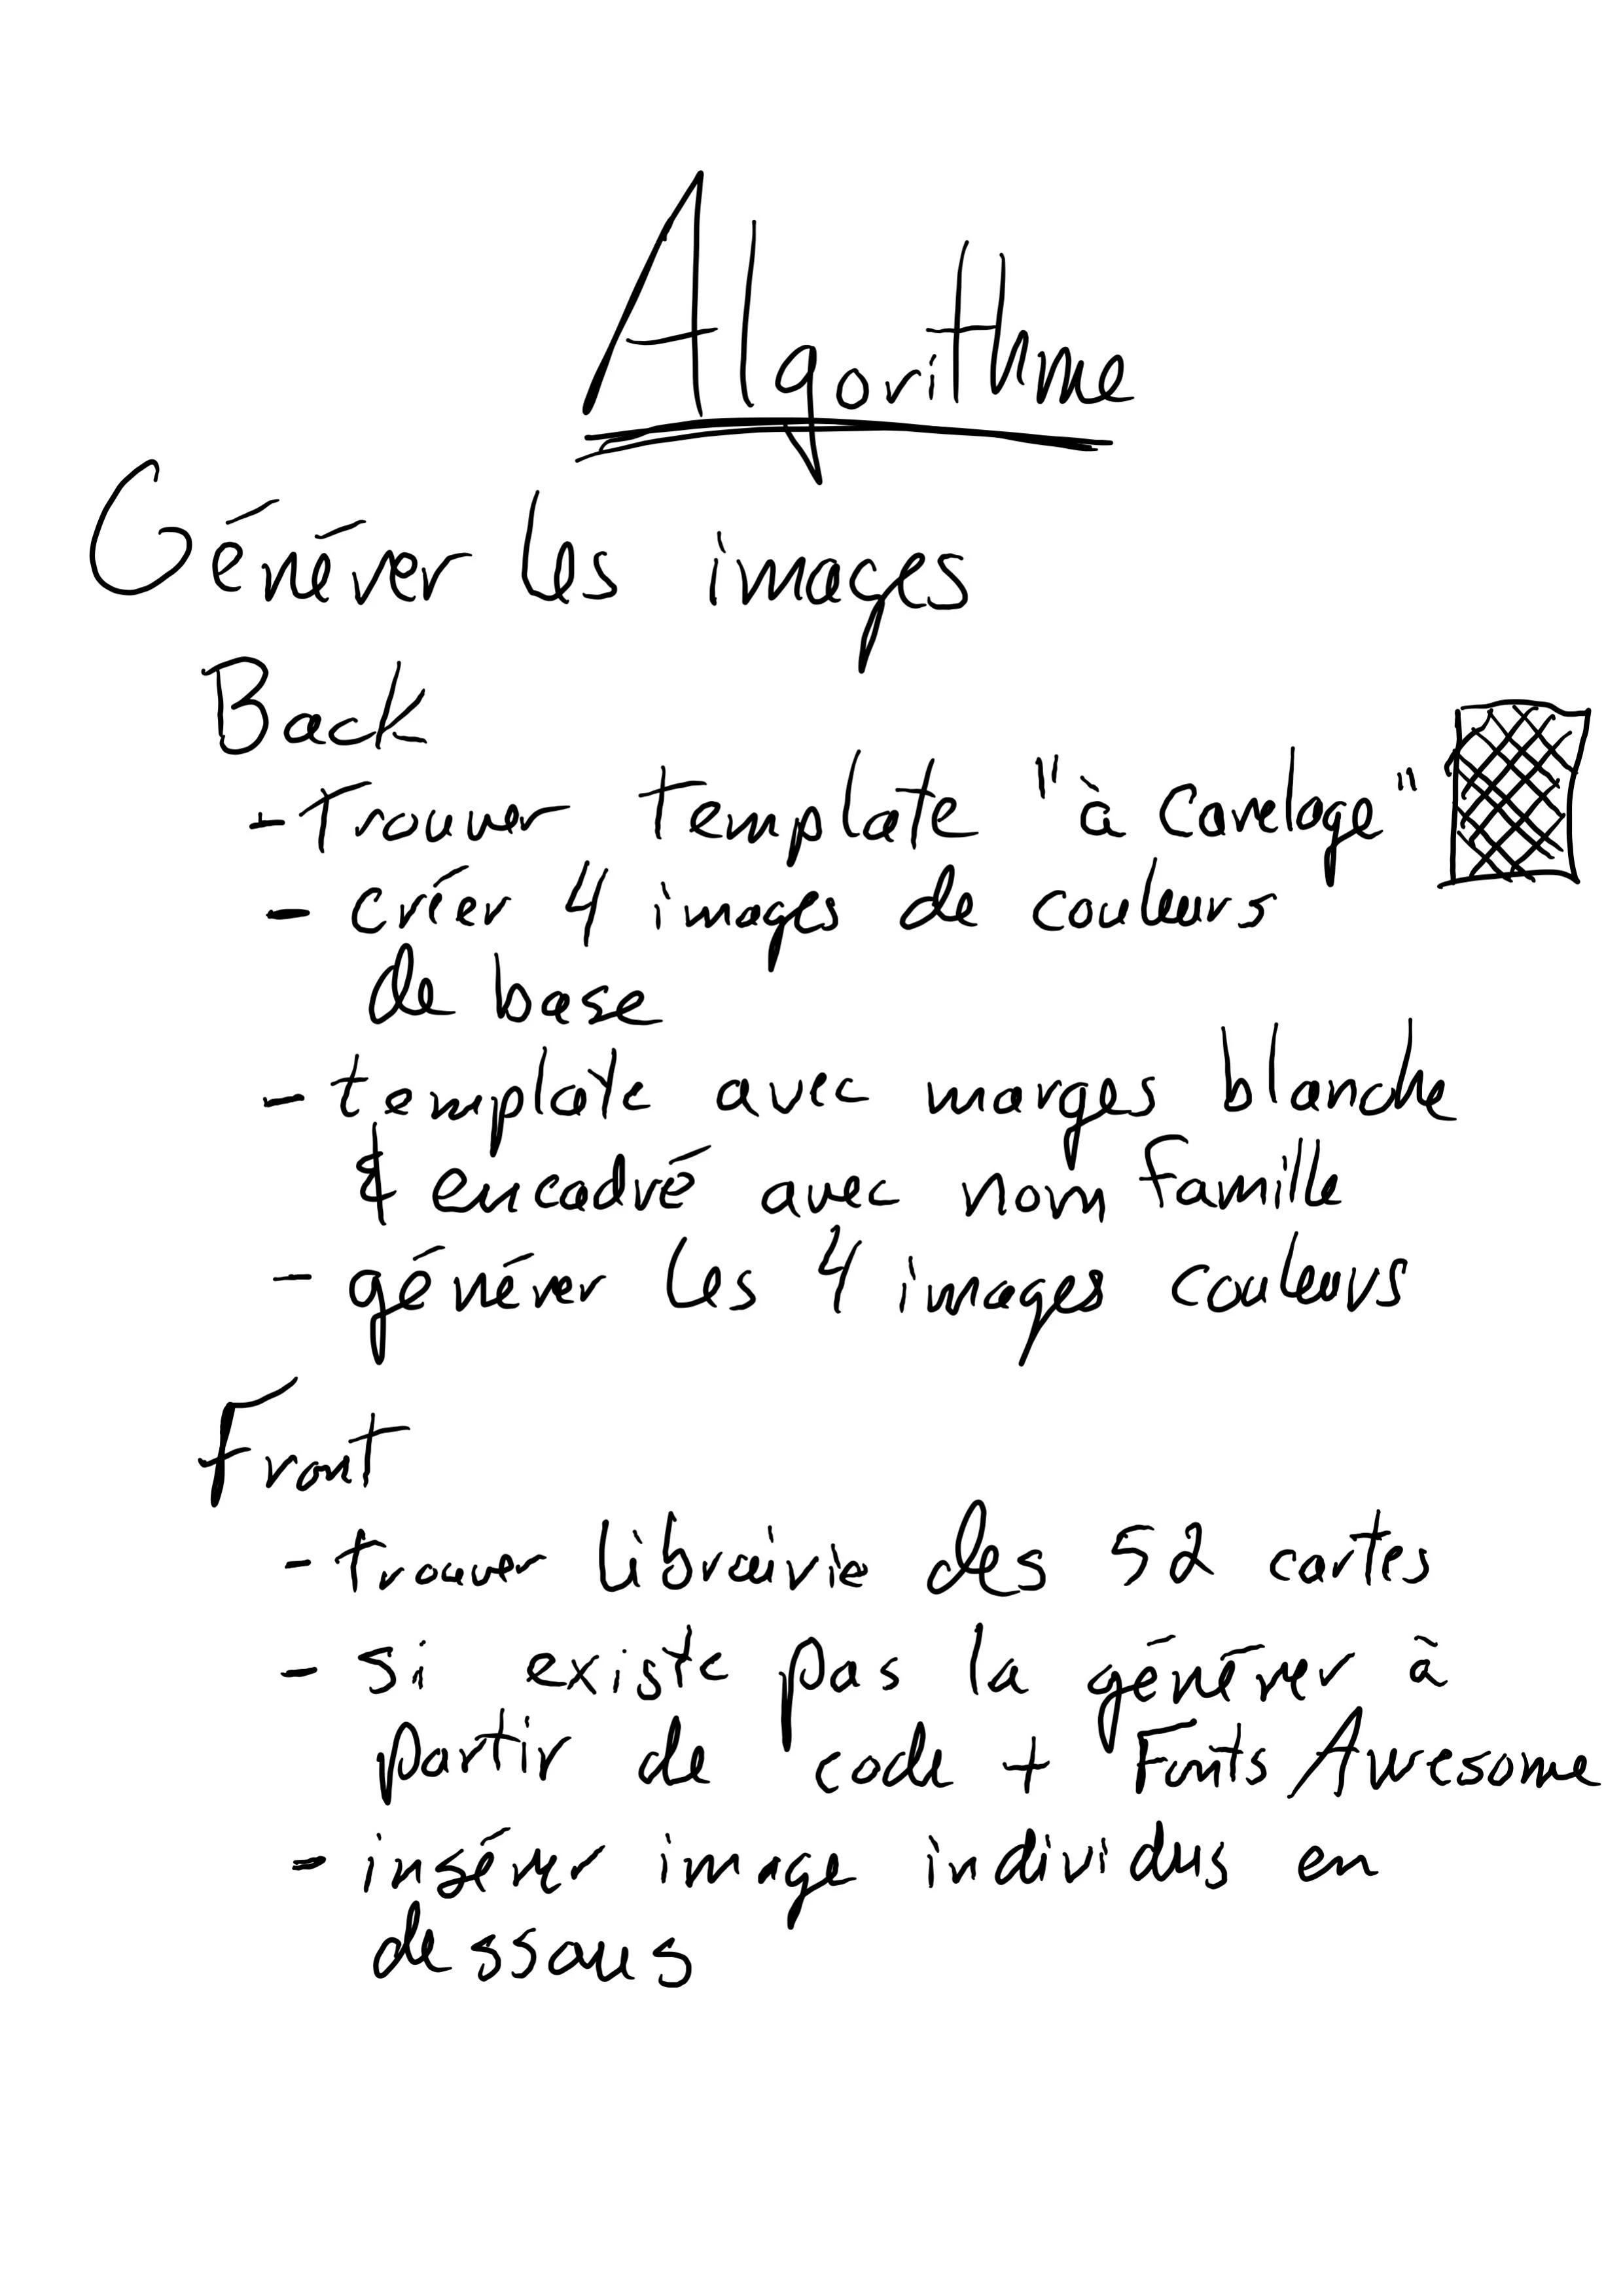 Algorithme
Générer les images
Back
- Trouver template "à carelage"
- créer 4 images de couleurs
de base
- template avec marges blanche
& encadré avec nom famille
- générer les 4 images couleurs
Front
- trouver librairie des 52 cartes
- si existe pas la générer à
partir de code + Fonts Awesome
- insérer image individus en
dessous